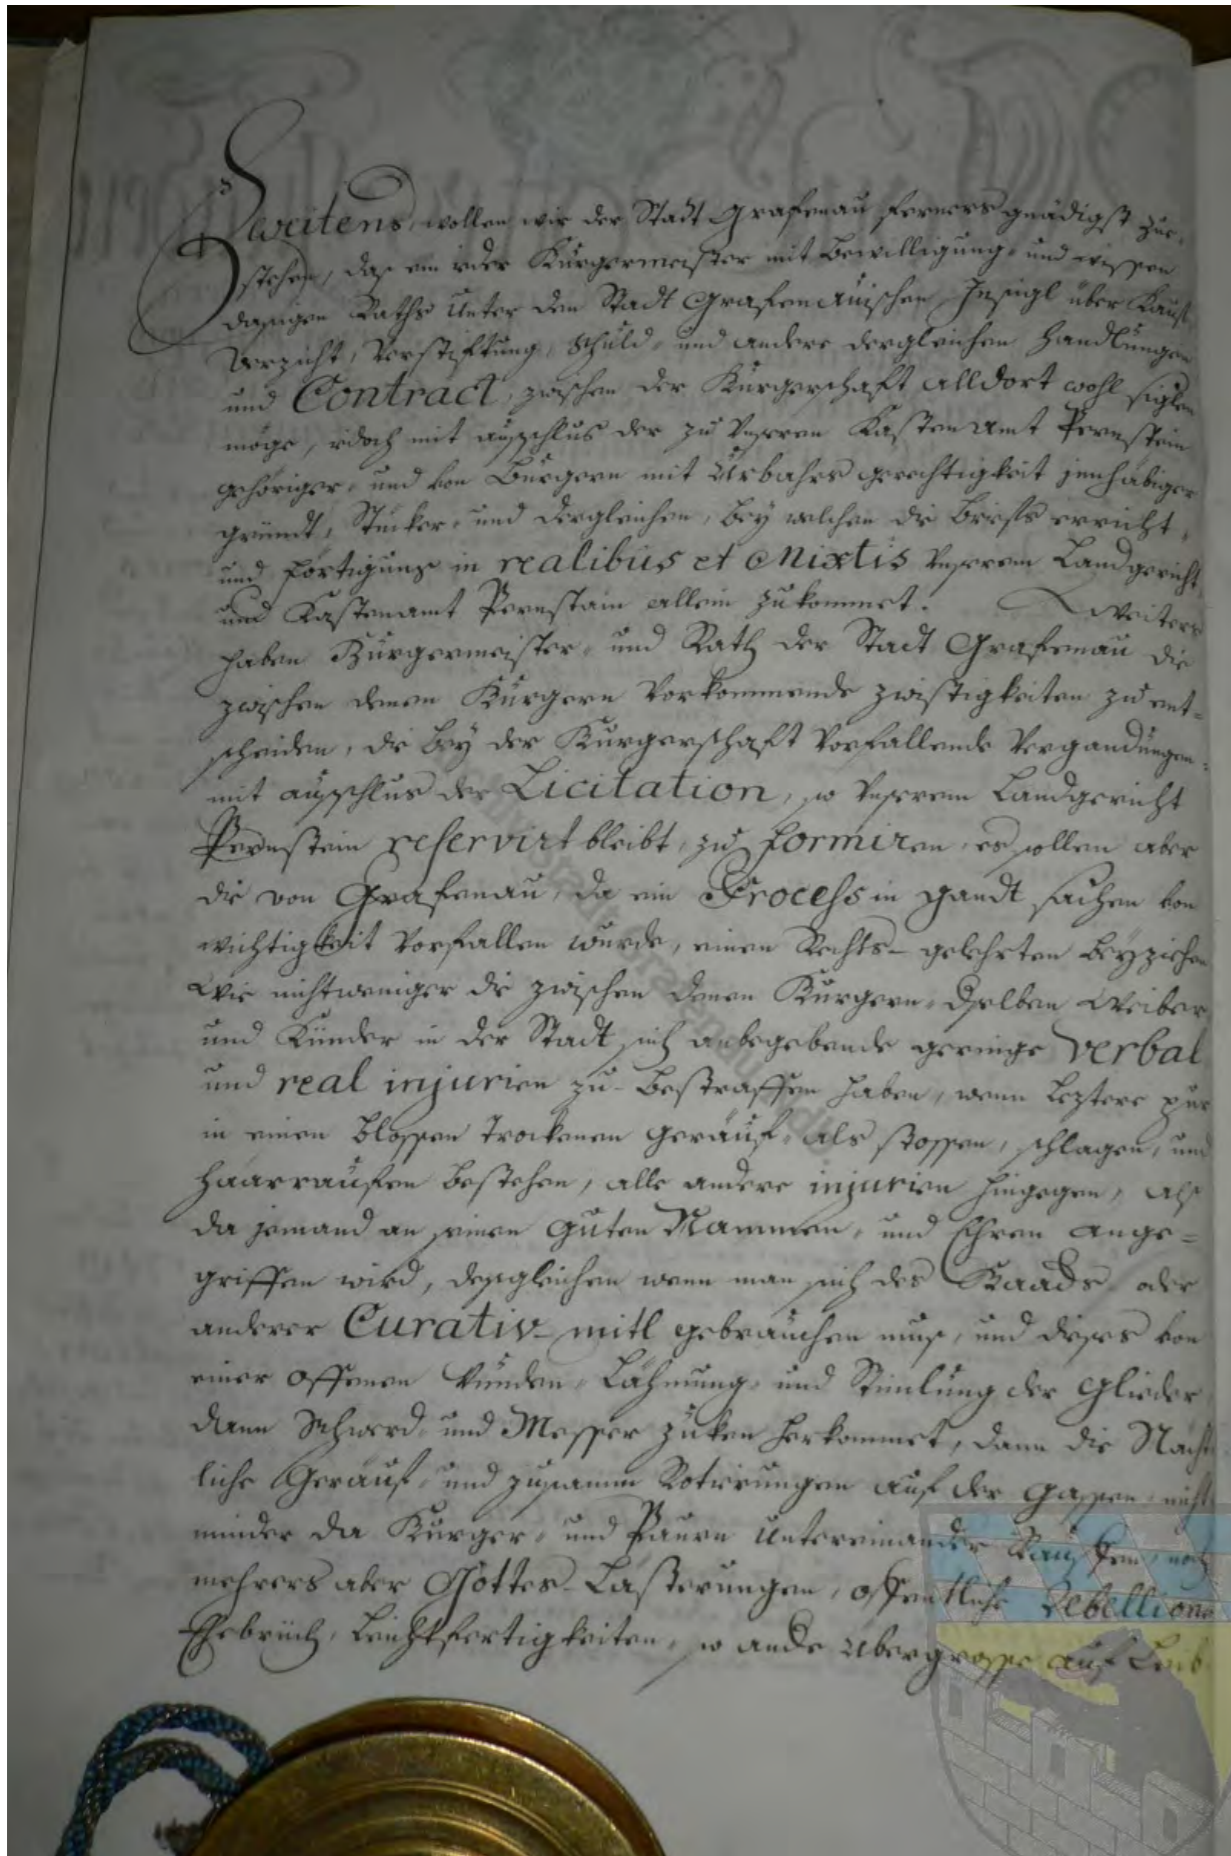 Zweitens wollen wir der Statt Grafenau ferners gnädigst zue-
stehen, das ein ieder Burgermeister mit Bewilligung- und wissen
dasigen Raths unter dem Stadt Grafenauischen Insigl über Kauf
Verzicht, Verstifftung, Schuld- und andere dergleichen Handlungen
und Contract, zwischen der Burgerschafft alldort wohl siglen
möge, iedoch mit ausschlus der zu Unserem Kastenamt Pernstein
gehöriger- und von Burgern mit Urbahrs gerechtigkeit innhabiger
gründt, Stucker- und dergleichen, bey welchen die briefs erricht-
und fertigung in realibus et Mixtis Unserem Landgericht
und Kastenamt Pernstain allein zukommet. Weiters
haben Burgermeister- und Rath der Stadt Grafenau die
zwischen denen Burgern vorkommende zwistigkeiten zu ent=
scheiden, die bey der Burgerschafft vorfallende Vergandungen=
mit ausschlus der Licitation, so Unserem Landgericht
Pernstein reservirt bleibt, zu formiren, es sollen aber
die von Grafenau, da ein Process in gandt sachen von
wichtigkeit vorfallen wurde, einen Rechts- gelehrten beyziehen
Wie nichtweniger die zwischen denen Burgern- dselben Weiber
und Kinder in der Stadt sich anbegebende geringe Verbal
und real injurien zu- bestraffen haben, wenn leztere pur
in einen blossen trockenen geräuf, als stossen, schlagen, und
haarrauffen bestehen, alle andere injurien hingegen, als
da jemand an seinen guten Nammen, und Ehren ange=
griffen wird, desgleichen wenn man sich des Baads- oder
anderer Curativ- mitl gebrauchen mus, und dises von
einer offenen Wunden- Lähmung- und Stimlung der glieder
dann Schwerd- und Messer zuken herkommet, dann die Nächt
liche Geräuf- und zusamm Rottirungen auf der gassen- nicht
minder da Burger- und Paurn untereinander Rauffen, noch
mehrers aber Gottes- Lästerungen, offentliche Rebellions
Ehebrüch, Leichtfertigkeiten, so ande übergrosse auf Leib